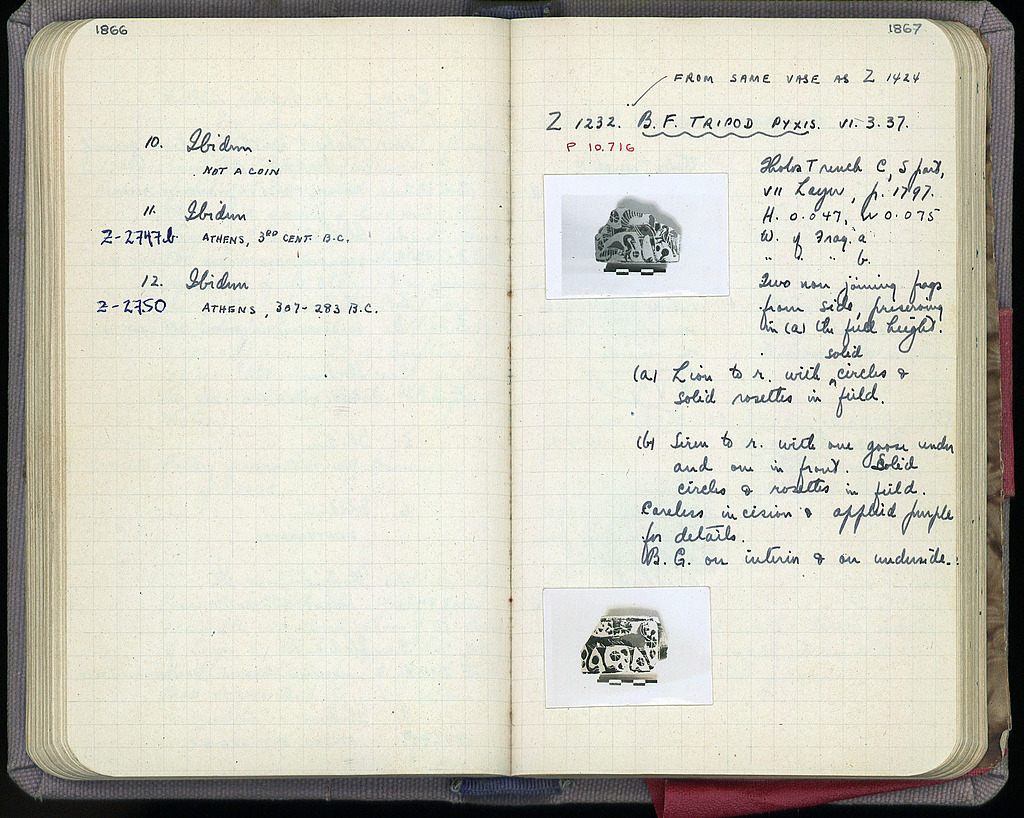 1866
10. Ibidum
NOT A COIN
11. Ibidum
Z-2747b ATHENS, 3RD CENT. B.C.
12. Ibidum
Z-2750 ATHENS, 307-283 B.C.
1867
FROM SAME VASE AS Z 1424
Z 1232. B.F. TRIPOD PYXIS. VI. 3. 37.
P 10.716
Tholos Trench C, S part,
VII Layer, p. 1797.
H. 0.047, W 0.075
W. of Frag. a
" " " b.
Two non joining frags
from side, preserving
in (a) the full height.
solid
(a) Lion to r. with ‸ circles &
solid rosettes in field.
(b) Siren to r. with one goose under
and one in front. Solid
circles & rosettes in field.
Careless incision & applied purple
for details.
B. G. on interior & on underside.